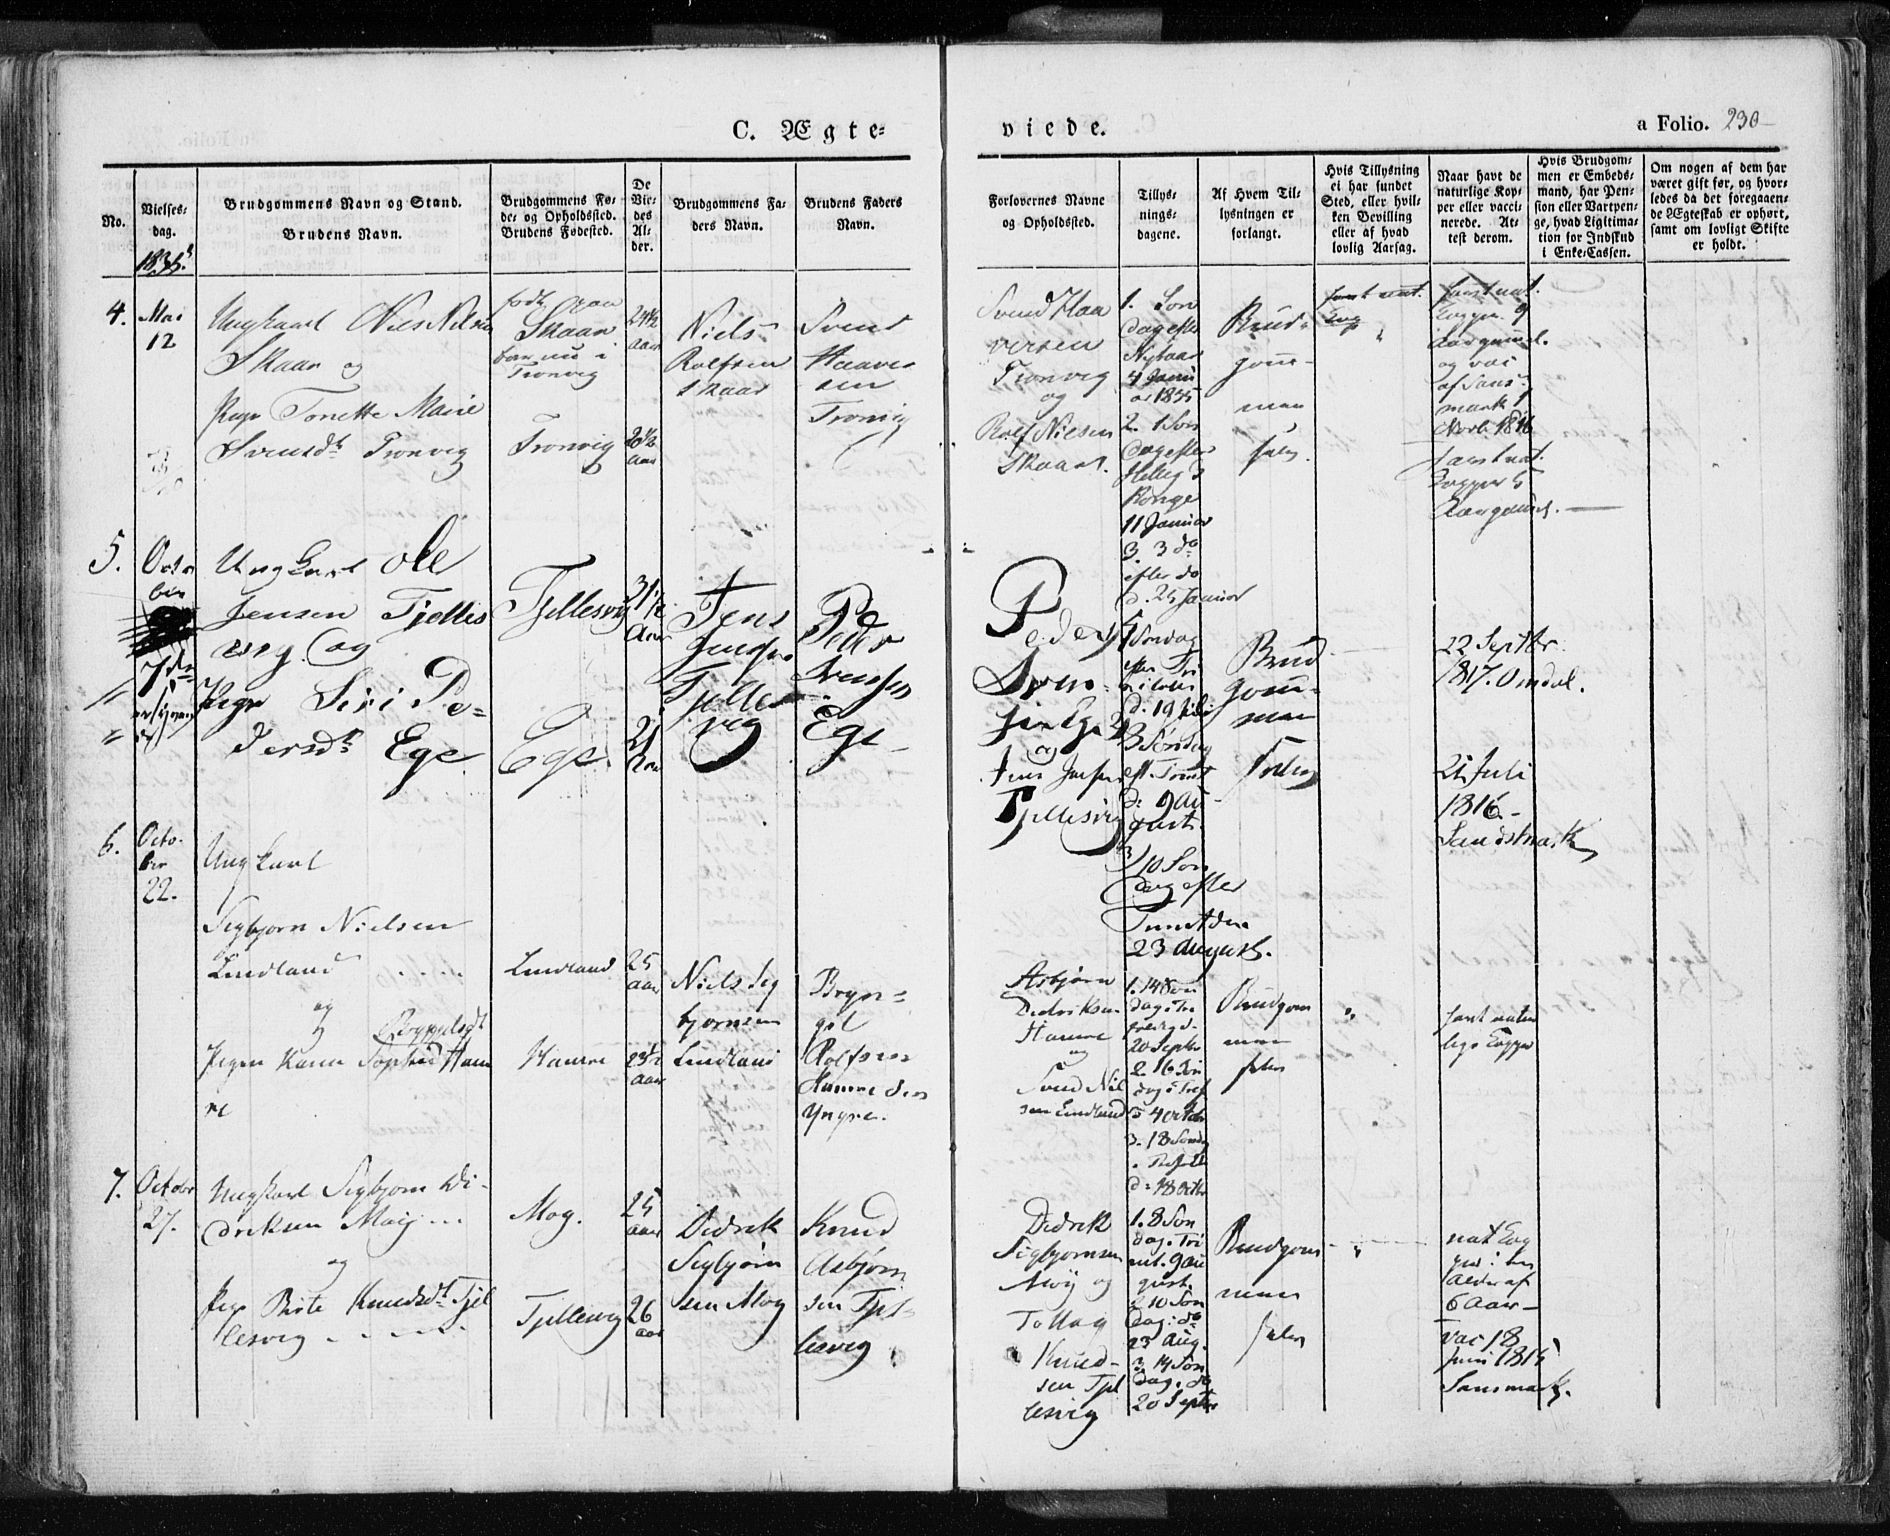 C. Ægte-
viede.
a Folio. 230
No.
Vielses-
dag.
1835.
Brudgommens Navn og Stand.
Brudens Navn.
Brudgommens Fø-
de- og Opholdssted.
Brudens Fødested.
De
Vie-
des
Al-
der.
Brudgommens Fa-
ders Navn.
Brudens Faders
Navn.
Forlovernes Navne
og Opholdssted.
Tillys-
nings-
dagene.
Af Hvem Til-
lysningen er
forlangt.
Hvis Tillysning
ei har fundet
Sted, eller hvil-
ken Bevilling
eller af hvad
lovlig Aarsag.
Naar havt de
naturlige Kop-
per eller vacci-
nerede. At-
test derom.
Hvis Brudgom-
men er Embeds-
mand, har Pen-
sion eller Vartpen-
ge, hvad Ligitima-
tion for Indskud
i Enke-Cassen.
Om nogen af dem har
været gift før, og hvor-
ledes da det foregaaen-
de Ægteskab er ophørt,
samt om lovligt Skifte
er holdt.
4.
Mai
12
Ungkarl Niels Nilsen
Skaar og
Pige Tonette Marie
Svensdtr Tronvig
født paa
Skaar
bor nu i
Tronvig
Tronvig
24½
aar
20½
aar
Niels
Rolfsen
Skaar
Svend
Haaver
sen
Tronvig
Svend Haa
versen
Tronvig
og
Rolf Nielsen
Skaar.
1. Søn
dag efter
Nytaar
4 Janu
ar 1835
2. 1 Søn
dag efter
Hellig 3
Konge
11 Januar
3. 3 do
efter do
d. 25 Januar
Brud-
gom-
men
selv
havt nat.
Kop
havt nat.
Kopper 9
Aar gammel.
og vac
af Sans-
mark 7
Novb 1816
havt nat.
Kopper 5
Aar gammel.
5.
Octo
ber
7de
Ungkarl Ole
Jensen Tjelles
vig og
Pige Siri Pe-
dersdtr Ege
Tjellesvig
Ege
31½
Aar
21
Aar
Jens
Jensen
Tjelles
vig
Peder
Svensen
Ege
Peder
Sven-
sen Ege
og
Jens Jensen
Tjellesvig
1 Søndag
efter Tri
nitatis
d. 19 Juli
2
3 Søndag
eft. Trinit
d. 9 Au-
gust.
3/
10 Søn
dag efter
Trinit den
23 August.
Brud
gom-
men
selv
22 Septbr.
1817. Omdal.
21 Juli
1816.
Sandsmark
6.
Octo-
ber
22.
Ungkarl
Sigbjørn Nielsen
Lindland
og
Bryngelsdt
Pigen Karen Sophie Ham
re
Lindland
Hamre
25
aar
23½
aar
Niels Sig
bjørnsen
Lindland
Bryn-
gel
Rolfsen
Hamre den
Yngre.
Asbjørn
Didriksen
Hamre
og
Svend Nil
sen Lindland
1. 14 Søn
dag i Tre
foldigh.
20 Septbr
2. 16 Søn
dag i Tref
d 4 October
3. 18 Søndag
i Trefold
d. 18 Octbr
Brudgom
men
selv
havt natur
lige Kopper
7.
October
27.
Ungkarl Sigbjørn Di-
driksen Møig
og
Pige Birte Knudsdtr Tjel
lesvig
Møg.
Tjellesvig
25
aar
26
aar
Didrik
Sigbjørn
sen Møy
Knud
Asbjørn
sen Tjel-
lesvig
Didrik
Sigbjørnsen
Møy og
Tollag
Knud-
sen Tjel
lesvig
1. 8 Søn
dag. Tri
nit. 9 Au
gust.
2 10 Søn
dag: do
23 Aug.
3. 14 Søn
dag. do
20 Septbr
Brudgom
men
selv
nat Kop
per i en
Alder af
6 Aar
vac 18
Juni 1815
Sansmark.